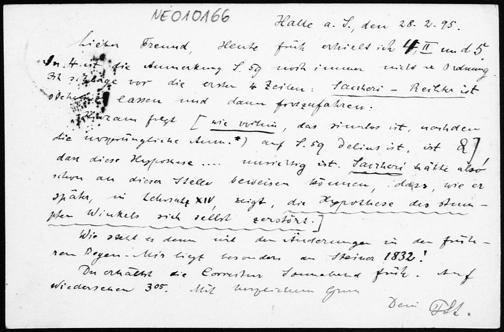 NE010166
Halle a. S., den 28.2.95.
Lieber Freund, Heute früh erhielt ich 4, II und 5
In 4 ist die Anmerkung S. 59 noch immer nicht in Ordnung
vor die ersten 4 Zeilen: Saccheri -
lassen und dann fortzufahren.
folgt [wie vorhin, das sinnlos ist, nachdem
die ursprüngliche Anm. *) auf S. 59 Delius ist, ist
das diese Hypothese .... unrichtig ist. Saccheri hätte also
schon an dieser Stelle beweisen können, dass, wie er
später, in Lehrsatz XIV, zeigt, die Hypothese des stum-
pfen Winkels sich selbst zerstört.]
Wie steht es denn mit den Änderungen in den frühe-
ren Bogen. Mir liegt besonders an Steiner 1832!
Du erhältst die Correctur Sonnabend früh. Auf
Wiedersehen 305. Mit herzlichem Gruss
Dein